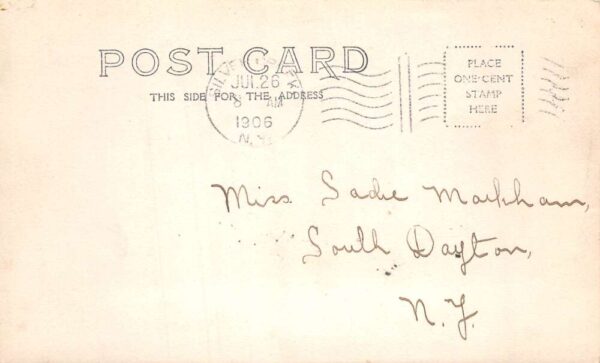 POST CARD
THIS SIDE FOR THE ADDRESS
SILVER CREEK
JUL 26
8 AM
1906
N.Y.
PLACE
ONE-CENT
STAMP
HERE
Miss Sadie Markham,
South Dayton,
N.Y.